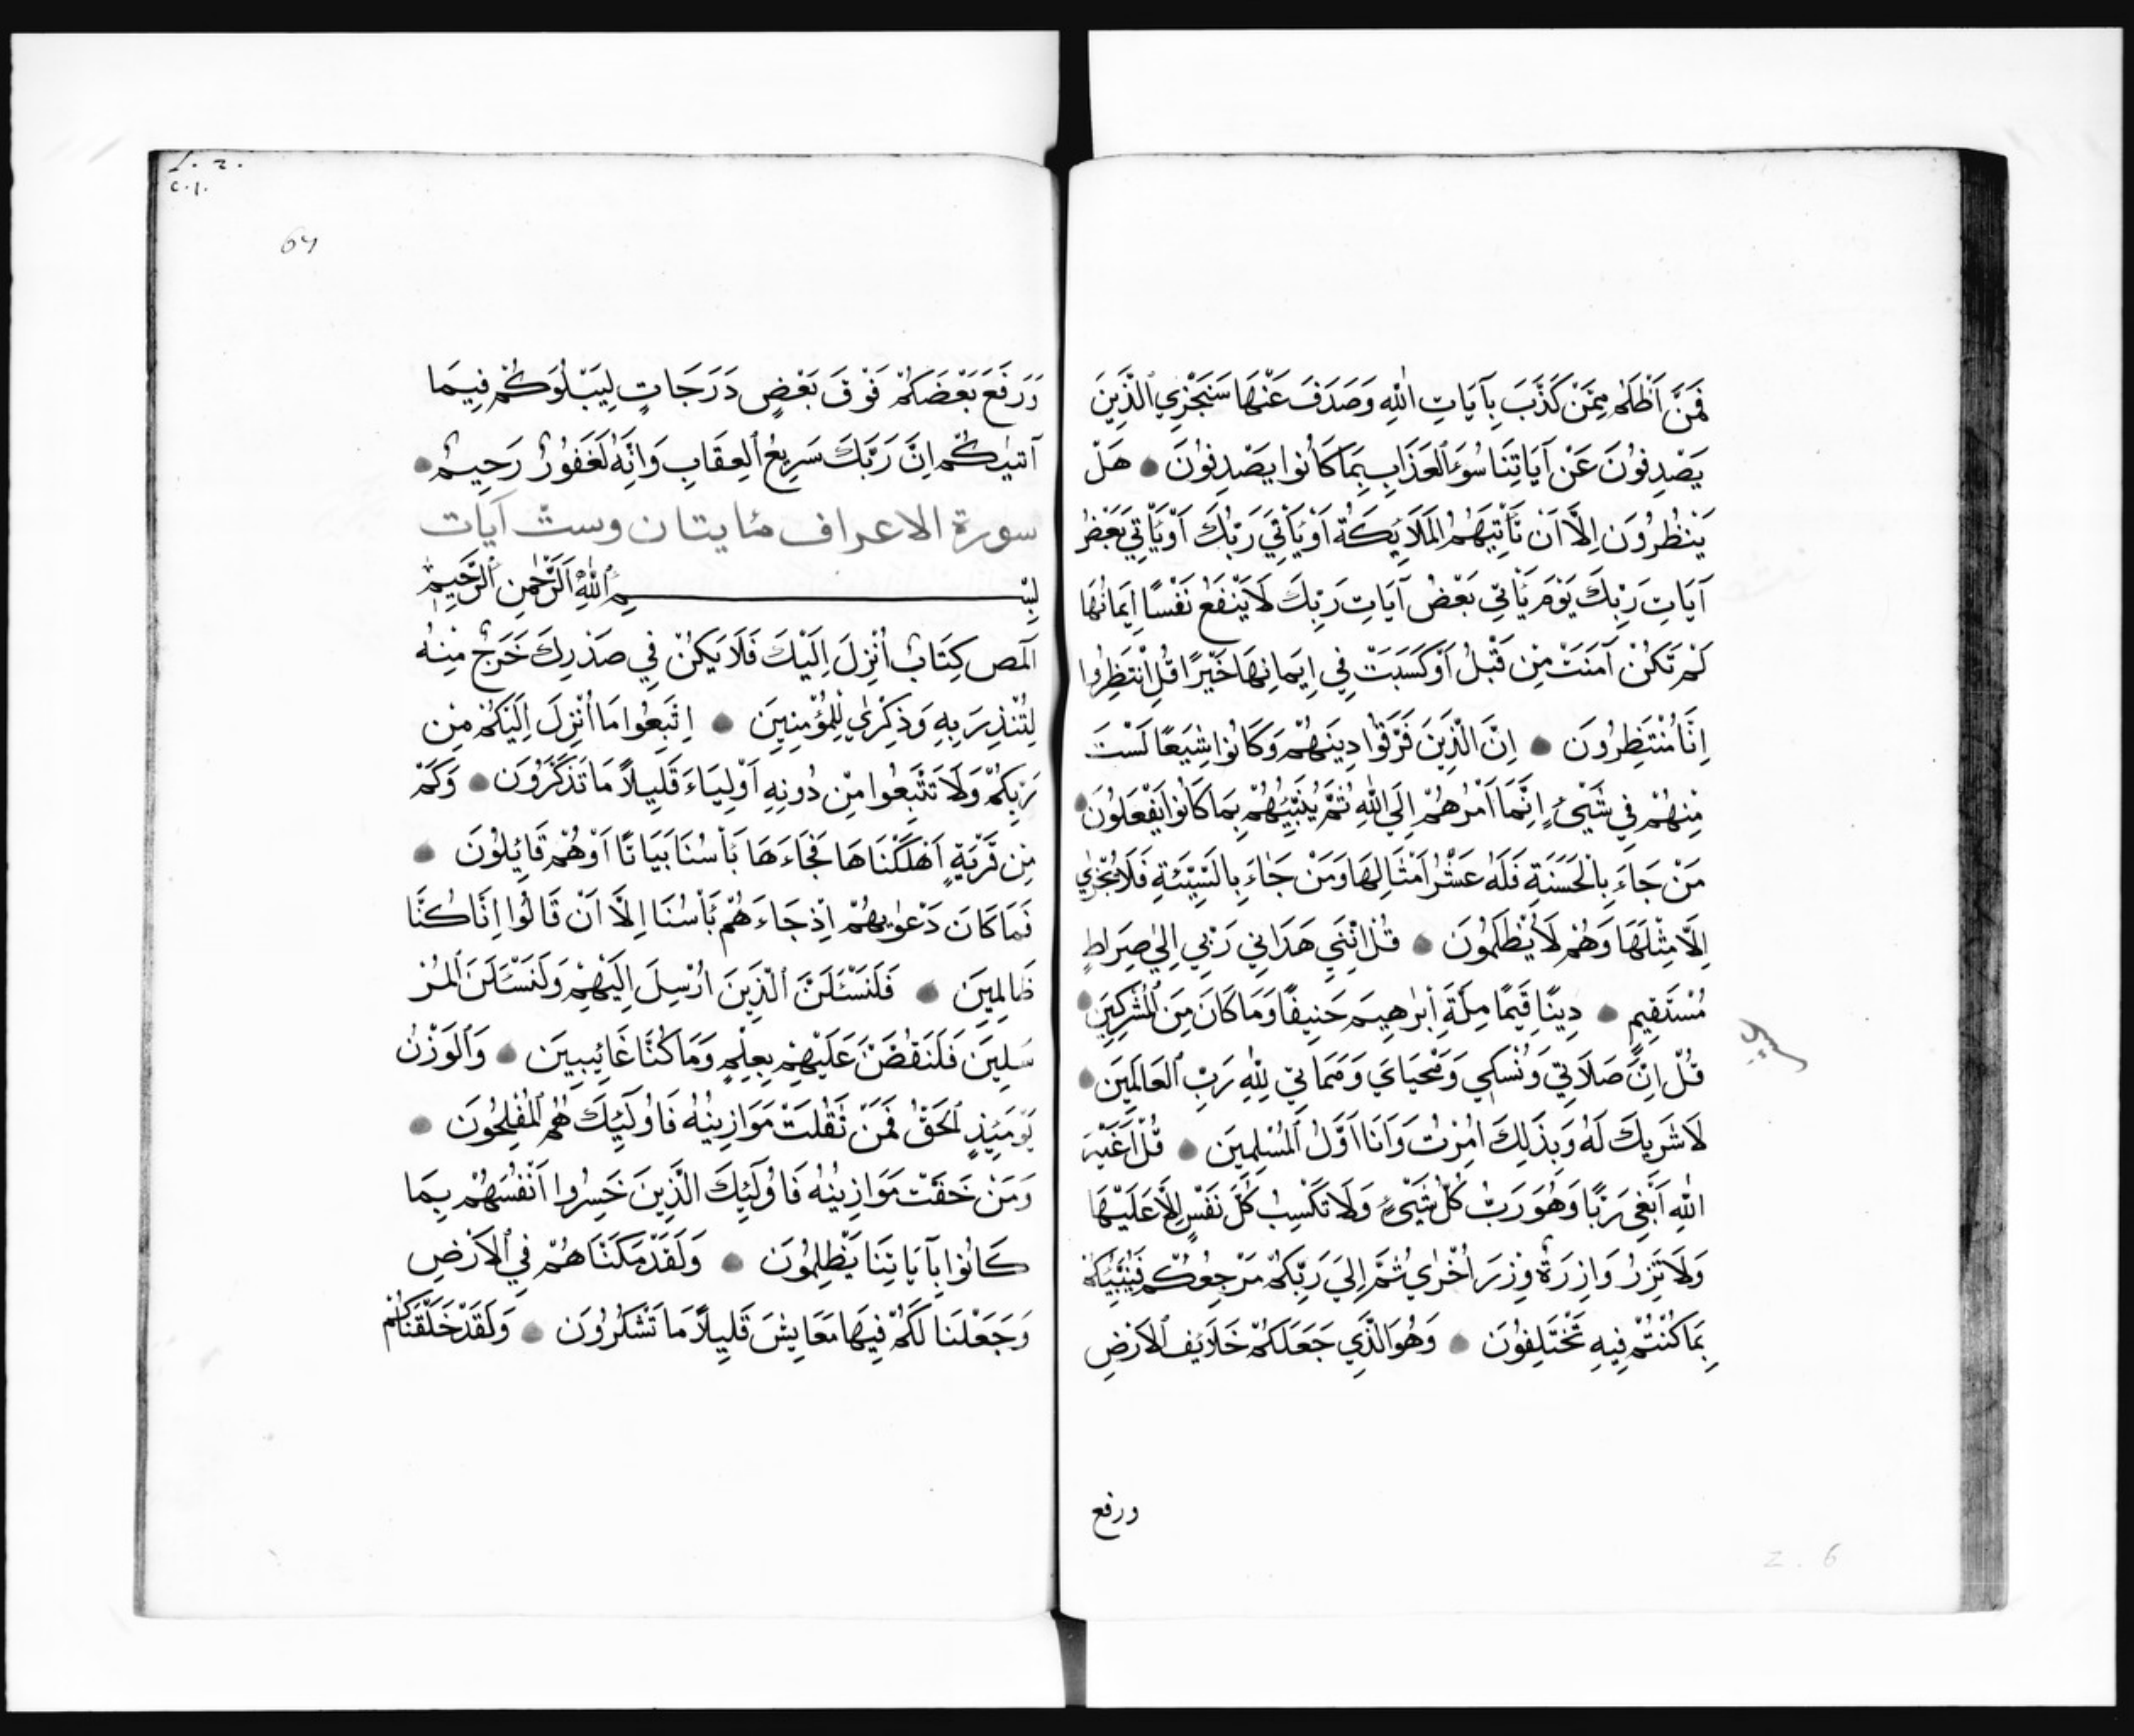 فَمَنْ اَظْلَمُ مِمَّنْ كَذَّبَ بِآيَاتِ اللّٰهِ وَصَدَفَ عَنْهَا سَنَجْزِي الَّذِينَ
يَصْدِفُونَ عَنْ آيَاتِنَا سُوءَ الْعَذَابِ بِمَا كَانُوا يَصْدِفُونَ ● هَلْ
يَنْظُرُونَ اِلَّا اَنْ تَأْتِيَهُمُ الْمَلَائِكَةُ اَوْ يَأْتِيَ رَبُّكَ اَوْ يَأْتِيَ بَعْضُ
آيَاتِ رَبِّكَ يَوْمَ يَأْتِي بَعْضُ آيَاتِ رَبِّكَ لَا يَنْفَعُ نَفْسًا اِيمَانُهَا
لَمْ تَكُنْ آمَنَتْ مِنْ قَبْلُ اَوْ كَسَبَتْ فِي اِيمَانِهَا خَيْرًا قُلِ انْتَظِرُوا
اِنَّا مُنْتَظِرُونَ ● اِنَّ الَّذِينَ فَرَّقُوا دِينَهُمْ وَكَانُوا شِيَعًا لَسْتَ
مِنْهُمْ فِي شَيْئٍ اِنَّمَا اَمْرُهُمْ اِلَى اللّٰهِ ثُمَّ يُنَبِّئُهُمْ بِمَا كَانُوا يَفْعَلُونَ ●
مَنْ جَاءَ بِالْحَسَنَةِ فَلَهُ عَشْرُ اَمْثَالِهَا وَمَنْ جَاءَ بِالسَّيِّئَةِ فَلَا يُجْزٰي
اِلَّا مِثْلَهَا وَهُمْ لَا يُظْلَمُونَ ● قُلْ اِنَّنِي هَدَانِي رَبِّي اِلٰي صِرَاطٍ
مُسْتَقِيمٍ ● دِينًا قِيَمًا مِلَّةَ اِبْرٰهِيمَ حَنِيفًا وَمَا كَانَ مِنَ الْمُشْرِكِينَ ●
قُلْ اِنَّ صَلَاتِي وَنُسُكِي وَمَحْيَايَ وَمَمَاتِي لِلّٰهِ رَبِّ الْعَالَمِينَ ●
لَا شَرِيكَ لَهُ وَبِذَلِكَ اُمِرْتُ وَاَنَا اَوَّلُ الْمُسْلِمِينَ ● قُلْ اَغَيْرَ
اللّٰهِ اَبْغِي رَبًّا وَهُوَ رَبُّ كُلِّ شَيْئٍ وَلَا تَكْسِبُ كُلُّ نَفْسٍ اِلَّا عَلَيْهَا
وَلَا تَزِرُ وَازِرَةٌ وِزْرَ اُخْرٰي ثُمَّ اِلَي رَبِّكُمْ مَرْجِعُكُمْ فَيُنَبِّئُكُمْ
بِمَا كُنْتُمْ فِيهِ تَخْتَلِفُونَ ● وَهُوَ الَّذِي جَعَلَكُمْ خَلَائِفَ الْاَرْضِ
ورفع
2.6
L. 2.
c.1.
وَرَفَعَ بَعْضَكُمْ فَوْقَ بَعْضٍ دَرَجَاتٍ لِيَبْلُوَكُمْ فِيمَا
آتٰيكُمْ اِنَّ رَبَّكَ سَرِيعُ الْعِقَابِ وَاِنَّهُ لَغَفُورٌ رَحِيمٌ ●
سورة الاعراف مايتان وستّ آيات
بِسْمِ اللّٰهِ الرَّحْمٰنِ الرَّحِيمِ
آلمص كِتَابٌ اُنْزِلَ اِلَيْكَ فَلَا يَكُنْ فِي صَدْرِكَ حَرَجٌ مِنْهُ
لِتُنْذِرَ بِهِ وَذِكْرٰي لِلْمُؤْمِنِينَ ● اِتَّبِعُوا مَا اُنْزِلَ اِلَيْكُمْ مِنْ
رَبِّكُمْ وَلَا تَتَّبِعُوا مِنْ دُونِهِ اَوْلِيَاءَ قَلِيلًا مَا تَذَكَّرُونَ ● وَكَمْ
مِنْ قَرْيَةٍ اَهْلَكْنَاهَا فَجَاءَهَا بَأْسُنَا بَيَاتًا اَوْ هُمْ قَائِلُونَ ●
فَمَا كَانَ دَعْوٰيهُمْ اِذْ جَاءَهُمْ بَأْسُنَا اِلَّا اَنْ قَالُوا اِنَّا كُنَّا
ظَالِمِينَ ● فَلَنَسْئَلَنَّ الَّذِينَ اُرْسِلَ اِلَيْهِمْ وَلَنَسْئَلَنَّ الْمُرْ
سَلِينَ فَلَنَقُصَّنَّ عَلَيْهِمْ بِعِلْمٍ وَمَا كُنَّا غَائِبِينَ ● وَالْوَزْنُ
يَوْمَئِذٍ الْحَقُّ فَمَنْ ثَقُلَتْ مَوَازِينُهُ فَاُولَئِكَ هُمُ الْمُفْلِحُونَ ●
وَمَنْ خَفَّتْ مَوَازِينُهُ فَاُولَئِكَ الَّذِينَ خَسِرُوا اَنْفُسَهُمْ بِمَا
كَانُوا بِآيَاتِنَا يَظْلِمُونَ ● وَلَقَدْ مَكَّنَّاهُمْ فِي الْاَرْضِ
وَجَعَلْنَا لَكُمْ فِيهَا مَعَايِشَ قَلِيلًا مَا تَشْكُرُونَ ● وَلَقَدْ خَلَقْنَاكُمْ